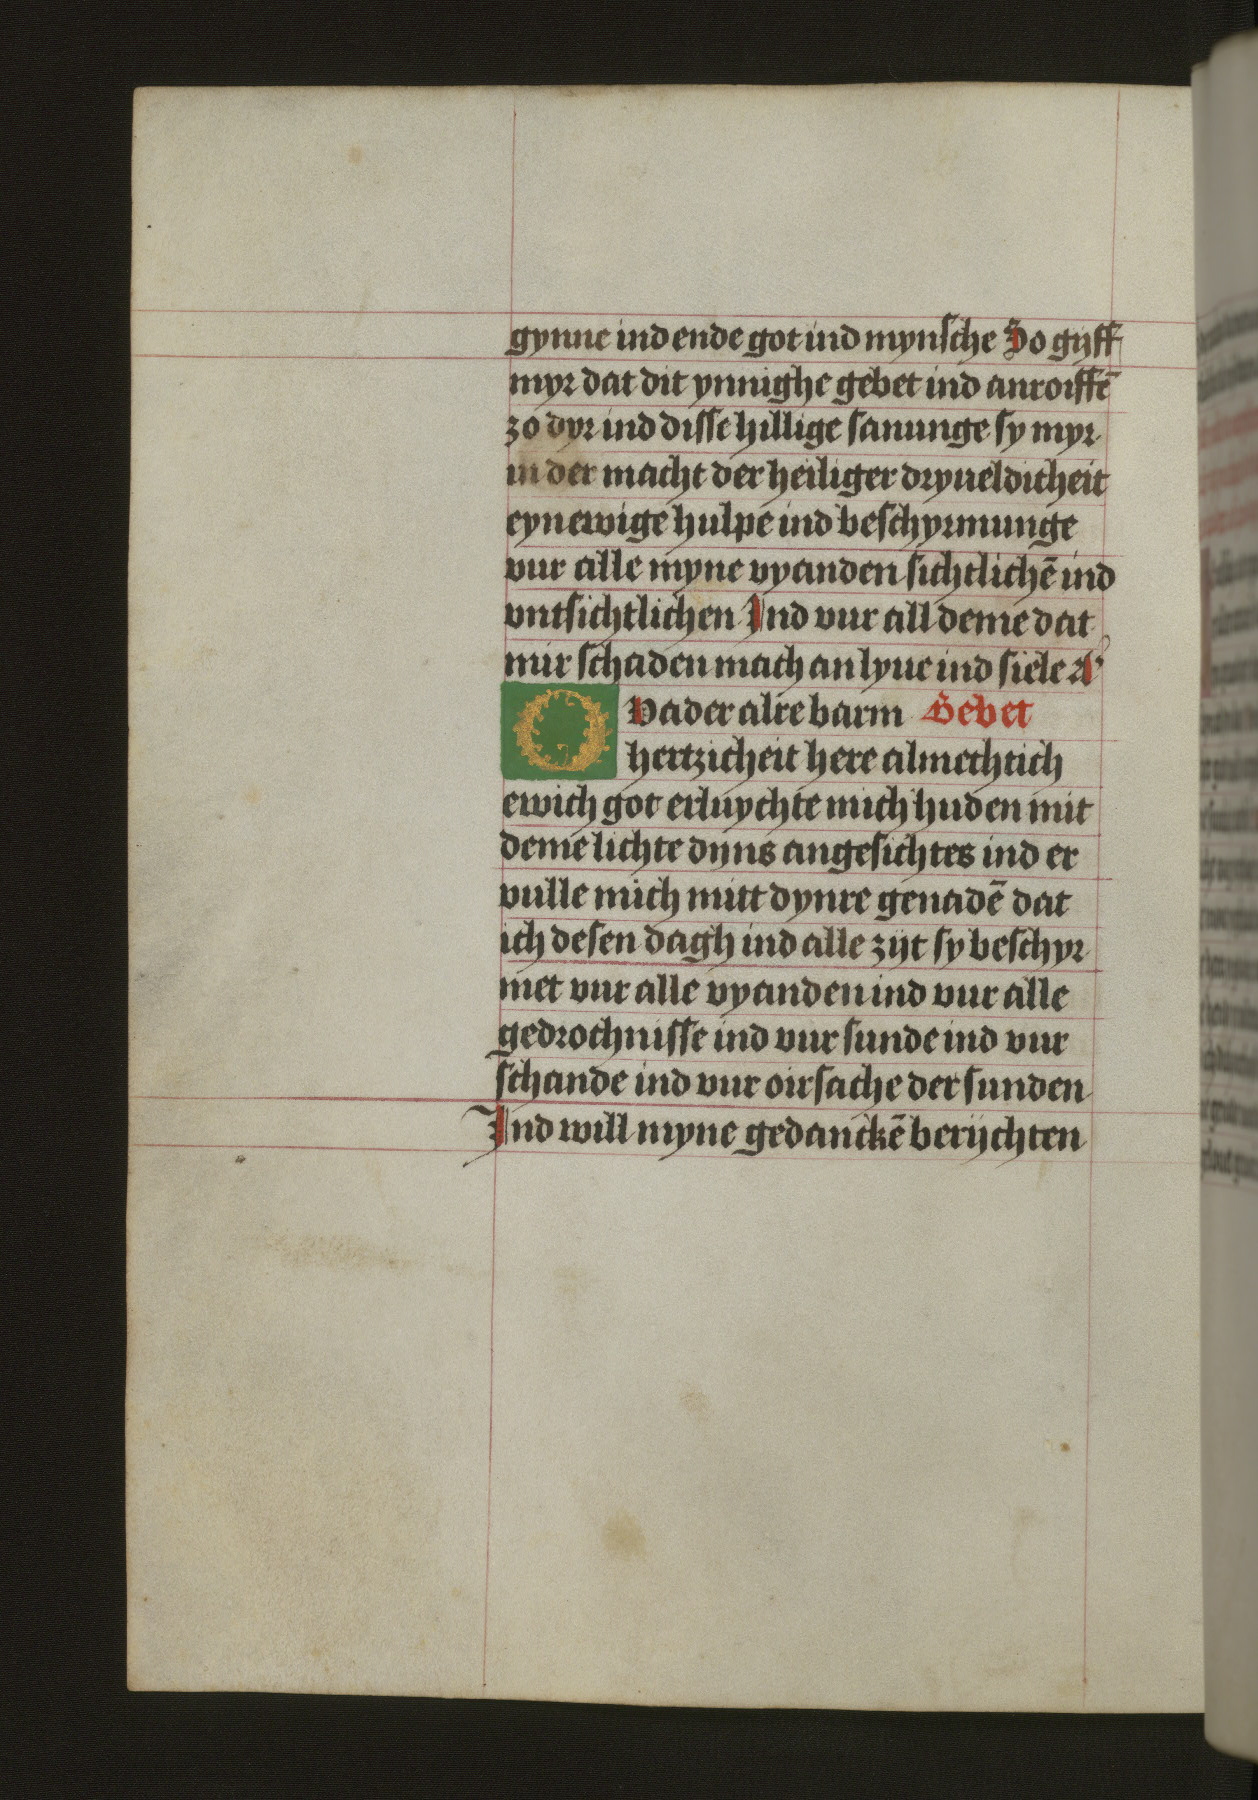 gynne ind ende got ind mynsche So gyff
myr dat dit ynnighe gebet ind anroiffē
zo dyr ind disse hillige sanunge sy myr
in der macht der heiliger dryueldicheit
eyn ewige hulpe ind beschyrmunge
vur alle myne vyanden sichtlichē ind
vntsichtlichen Ind vur all deme dat
mir schaden mach an lyue ind siele
O Vader alre barm Gebet
hertzicheit here almechtich
ewich got erluychte mich huden mit
deme lichte dijns angesichtes ind er
vulle mich mitt dynre genadē dat
ich desen dagh ind alle zijt sy beschyr
met vur alle vyanden ind vur alle
gedrochnisse ind vur sunde ind vur
schande ind vur oirsache der sunden
Ind will myne gedanckē berijchten